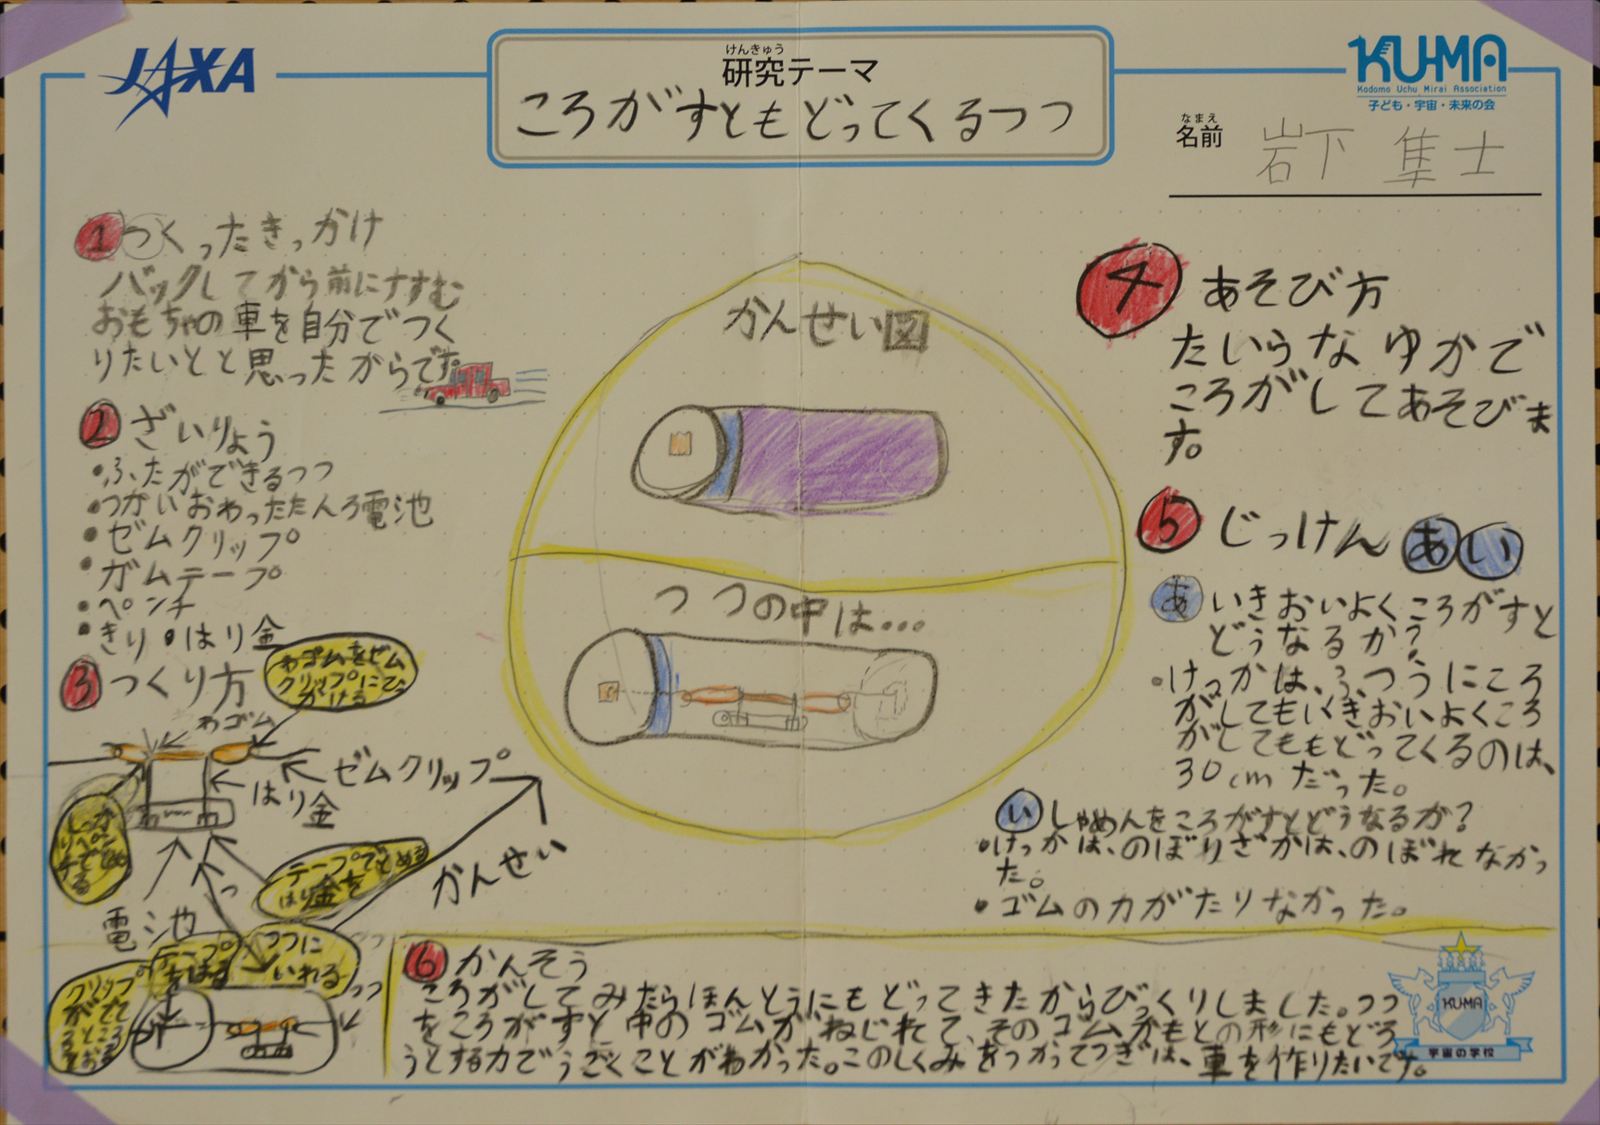 JAXA
けんきゅう
研究テーマ
ころがすともどってくるつつ
KU-MA
Kodomo Uchu Mirai Association
子ども・宇宙・未来の会
なまえ
名前
岩下 隼士
1 つくったきっかけ
バックしてから前にすすむ
おもちゃの車を自分でつく
りたいとと思ったからです。
2 ざいりょう
・ふたができるつつ
・つかいおわったたんろ電池
・ゼムクリップ
・ガムテープ
・ペンチ
・きり・はり金
3 つくり方
わゴムをゼム
クリップにひっ
かける
わゴム
ゼムクリップ
はり金
テープでとめる
はり金を
電池
かんせい
テープ
をはる
つつに
いれる
つつ
クリップ
かんせい図
つつの中は...
4 あそび方
たいらなゆかで
ころがしてあそびま
す。
5 じっけん あ い
あ いきおいよくころがすと
どうなるか?
・けっかは、ふつうにころ
がしてもいくきおいよくころ
がしてももどってくるのは、
30cmだった。
い しゃめんをころがすとどうなるか?
・けっかは、のぼりざかは、のぼれなかっ
た。
・ゴムの力がたりなかった。
6 かんそう
ころがしてみたらほんとうにもどってきたからびっくりしました。つつ
をころがすと中のゴムがねじれて、そのゴムがもとの形にもどろ
うとする力でうごくことがわかった。このしくみをつかってつぎは、車を作りたいです。
KUMA
宇宙の学校